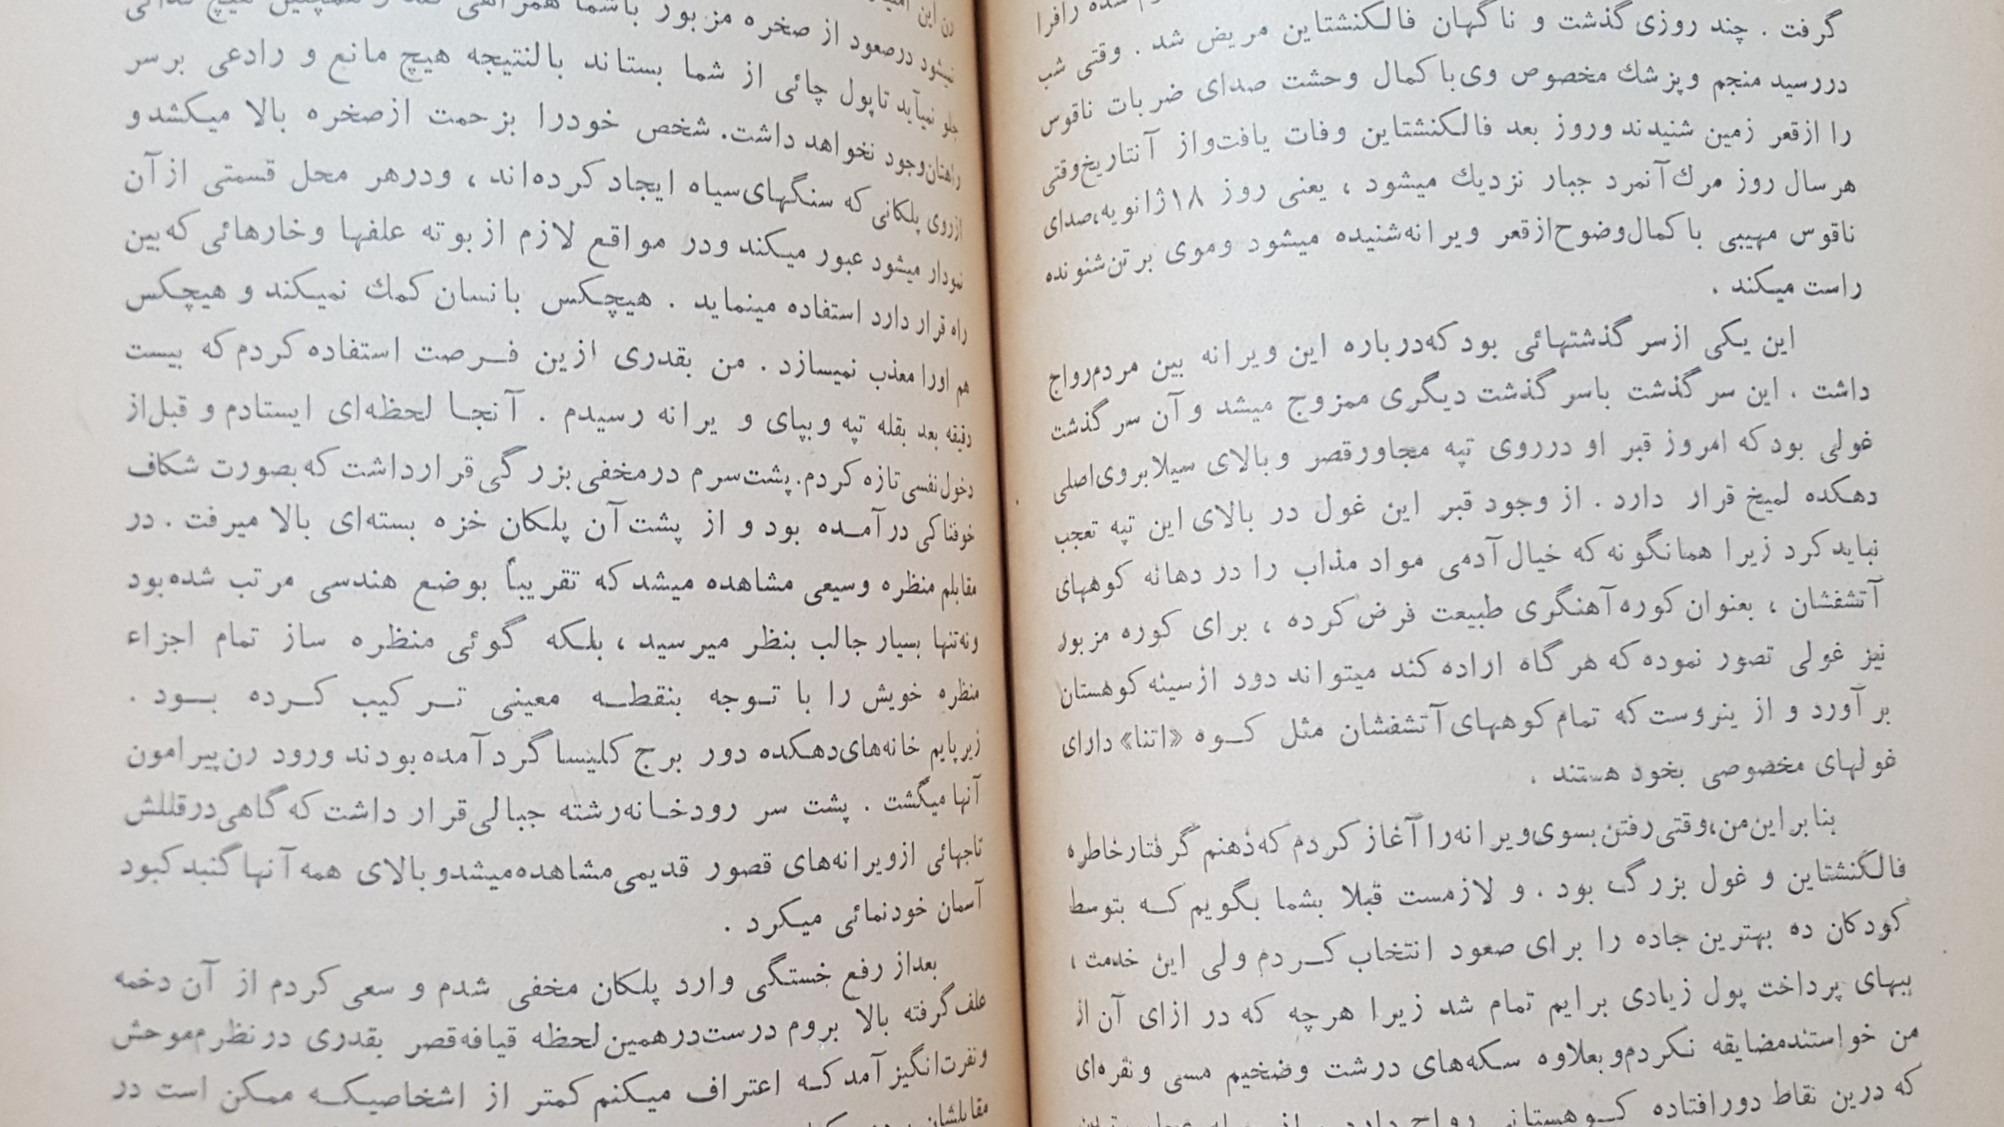 شده رافرا
گرفت . چند روزی گذشت و ناگهان فالکنشتاین مریض شد . وقتی شب
دررسید منجم وپزشك مخصوص وی‌باکمال وحشت صدای ضربات ناقوس
را ازقعر زمین شنیدند وروز بعد فالکنشتاین وفات یافت‌واز آنتاریخ‌وقتی
هرسال روز مرك‌آنمرد جبار نزدیك میشود ، یعنی روز ۱۸ژانویه،صدای
ناقوس مهیبی باکمال‌وضوح‌ازقعر ویرانه‌شنیده میشود وموی برتن‌شنونده
راست میکند .
این یکی ازسرگذشتهائی بود که‌درباره این ویرانه بین مردم‌رواج
داشت . این سرگذشت باسرگذشت دیگری ممزوج میشد وآن سرگذشت
غولی بودکه امروز قبر او درروی تپه مجاورقصر وبالای سیلابروی‌اصلی
دهکده لمیخ قرار دارد . از وجود قبر این غول در بالای این تپه تعجب
نباید کرد زیرا همانگونه که خیال آدمی مواد مذاب را در دهانه کوههای
آتشفشان ، بعنوان کوره آهنگری طبیعت فرض کرده ، برای کوره مزبور
نیز غولی تصور نموده که هرگاه اراده کند میتواند دود ازسینه کوهستان
برآورد و از ینروست که تمام کوههای آتشفشان مثل کوه «اتنا» دارای
غولهای مخصوصی بخود هستند .
بنابراین‌من،وقتی رفتن بسوی‌ویرانه‌را آغاز کردم که‌ذهنم گرفتارخاطره
فالگنشتاین و غول بزرگ بود . و لازمست قبلا بشما بگویم که بتوسط
کودکان ده بهترین جاده را برای صعود انتخاب کردم ولی این خدمت ،
ببهای پرداخت پول زیادی برایم تمام شد زیرا هرچه که در ازای آن از
من خواستندمضایقه نکردم‌وبعلاوه سکه‌های درشت وضخیم مسی ونقره‌ای
که درین نقاط دورافتاده کوهستانی رواج دارد
رن این
نمیشود درصعود از صخره مزبور باشما همراهی کند و همچنین هیچ
جلو نمیآید تاپول چائی از شما بستاند بالنتیجه هیچ مانع و رادعی برسر
راهتان‌وجود نخواهد داشت. شخص خودرا بزحمت ازصخره بالا میکشدو
ازروی پلکانی که سنگهای‌سیاه ایجاد کرده‌اند ، ودرهر محل قسمتی ازآن
نمودار میشود عبور میکند ودر مواقع لازم ازبوته علفها وخارهائی که‌بین
راه قرار دارد استفاده مینماید . هیچکس بانسان کمك نمیکند و هیچکس
هم اورا معذب نمیسازد . من بقدری ازین فرصت استفاده کردم که بیست
دقیقه بعد بقله تپه وبپای و یرانه رسیدم . آنجا لحظه‌ای ایستادم و قبل‌از
دخول‌نفسی تازه کردم. پشت‌سرم درمخفی بزرگی قرارداشت که بصورت شکاف
خوفناکی درآمده بود و از پشت‌آن پلکان خزه بسته‌ای بالا میرفت . در
مقابلم منظره وسیعی مشاهده میشد که تقریباً بوضع هندسی مرتب شده‌بود
ونه‌تنها بسیار جالب بنظر میرسید ، بلکه گوئی منظره ساز تمام اجزاء
منظره خویش را با توجه بنقطه معینی ترکیب کرده بود .
زیرپایم خانه‌های‌دهکده دور برج کلیسا گردآمده‌بودند ورود رن‌پیرامون
آنها میگشت . پشت سر رودخانه‌رشته جبالی‌قرار داشت که گاهی‌درقللش
تاجهائی ازویرانه‌های قصور قدیمی‌مشاهده‌میشدو بالای همه آنها گنبدکبود
آسمان خودنمائی میکرد .
بعداز رفع خستگی وارد پلکان مخفی شدم و سعی کردم از آن دخمه
علف‌گرفته بالا بروم درست‌درهمین لحظه قیافه‌قصر بقدری درنظرم‌موحش
ونفرت‌انگیز آمدکه اعتراف میکنم کمتر از اشخاصیکه ممکن است در